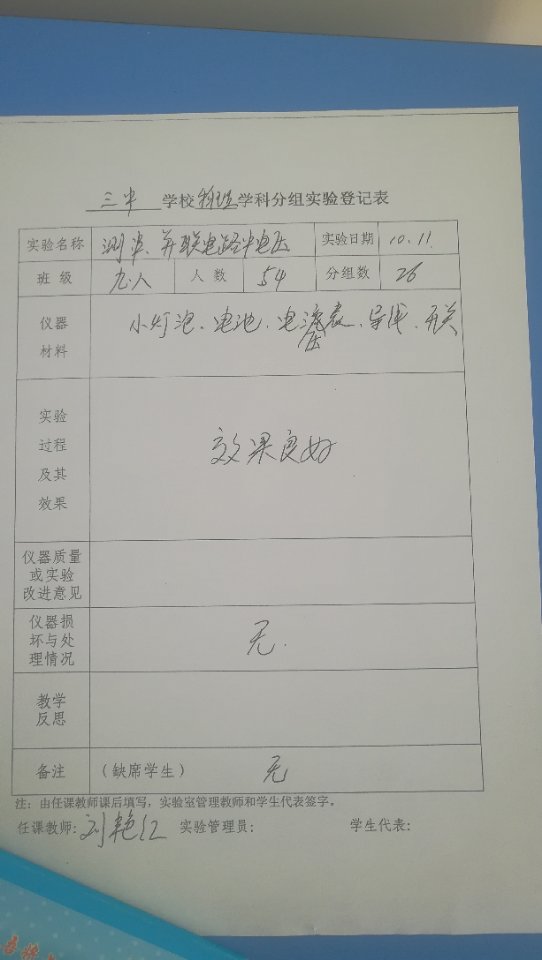 三中 学校物理学科分组实验登记表
实验名称 测串、并联电路中电压 实验日期 10.11
班级 九.八 人数 54 分组数 26
仪器材料 小灯泡、电池、电压表、导线、开关
实验过程及其效果 效果良好
仪器质量
或实验
改进意见
仪器损
坏与处
理情况 无.
教学
反思
备注 (缺席学生) 无
注：由任课教师课后填写，实验室管理教师和学生代表签字。
任课教师: 刘艳红 实验管理员: 学生代表: